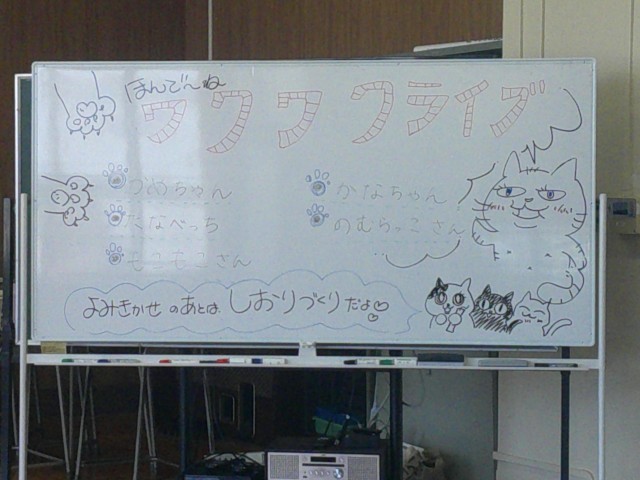 ほんで〜ね
ワクワククライブ
うめちゃん
かなちゃん
たなべっち
のむらっこさん
もこもこさん
よみきかせのあとは しおりづくりだよ♡